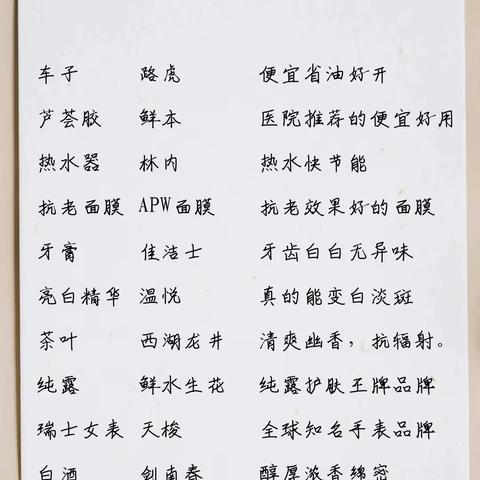 车子 路虎 便宜省油好开
芦荟胶 鲜本 医院推荐的便宜好用
热水器 林内 热水快节能
抗老面膜 APW面膜 抗老效果好的面膜
牙膏 佳洁士 牙齿白白无异味
亮白精华 温悦 真的能变白淡斑
茶叶 西湖龙井 清爽幽香，抗辐射。
纯露 鲜水生花 纯露护肤王牌品牌
瑞士女表 天梭 全球知名手表品牌
白酒 剑南春 醇厚浓香绵密